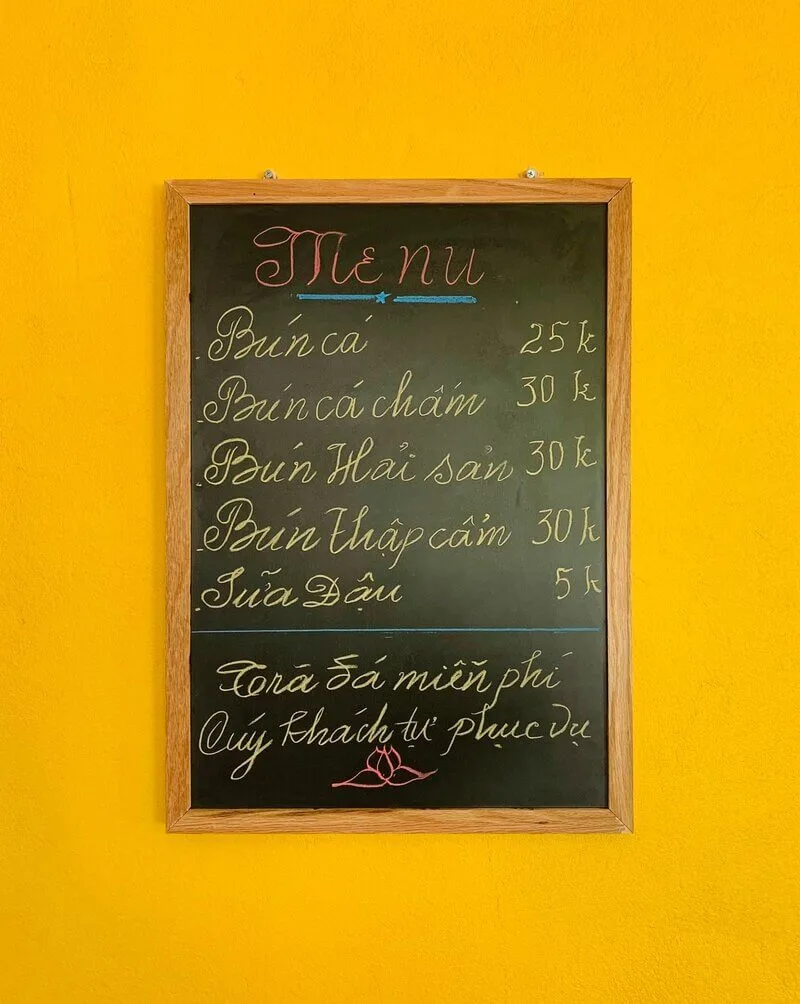 Menu
. Bún cá 25 k
. Bún cá chấm 30 k
. Bún Hải sản 30 k
. Bún thập cẩm 30 k
. Sữa Đậu 5 k
Trà đá miễn phí
Quý khách tự phục vụ